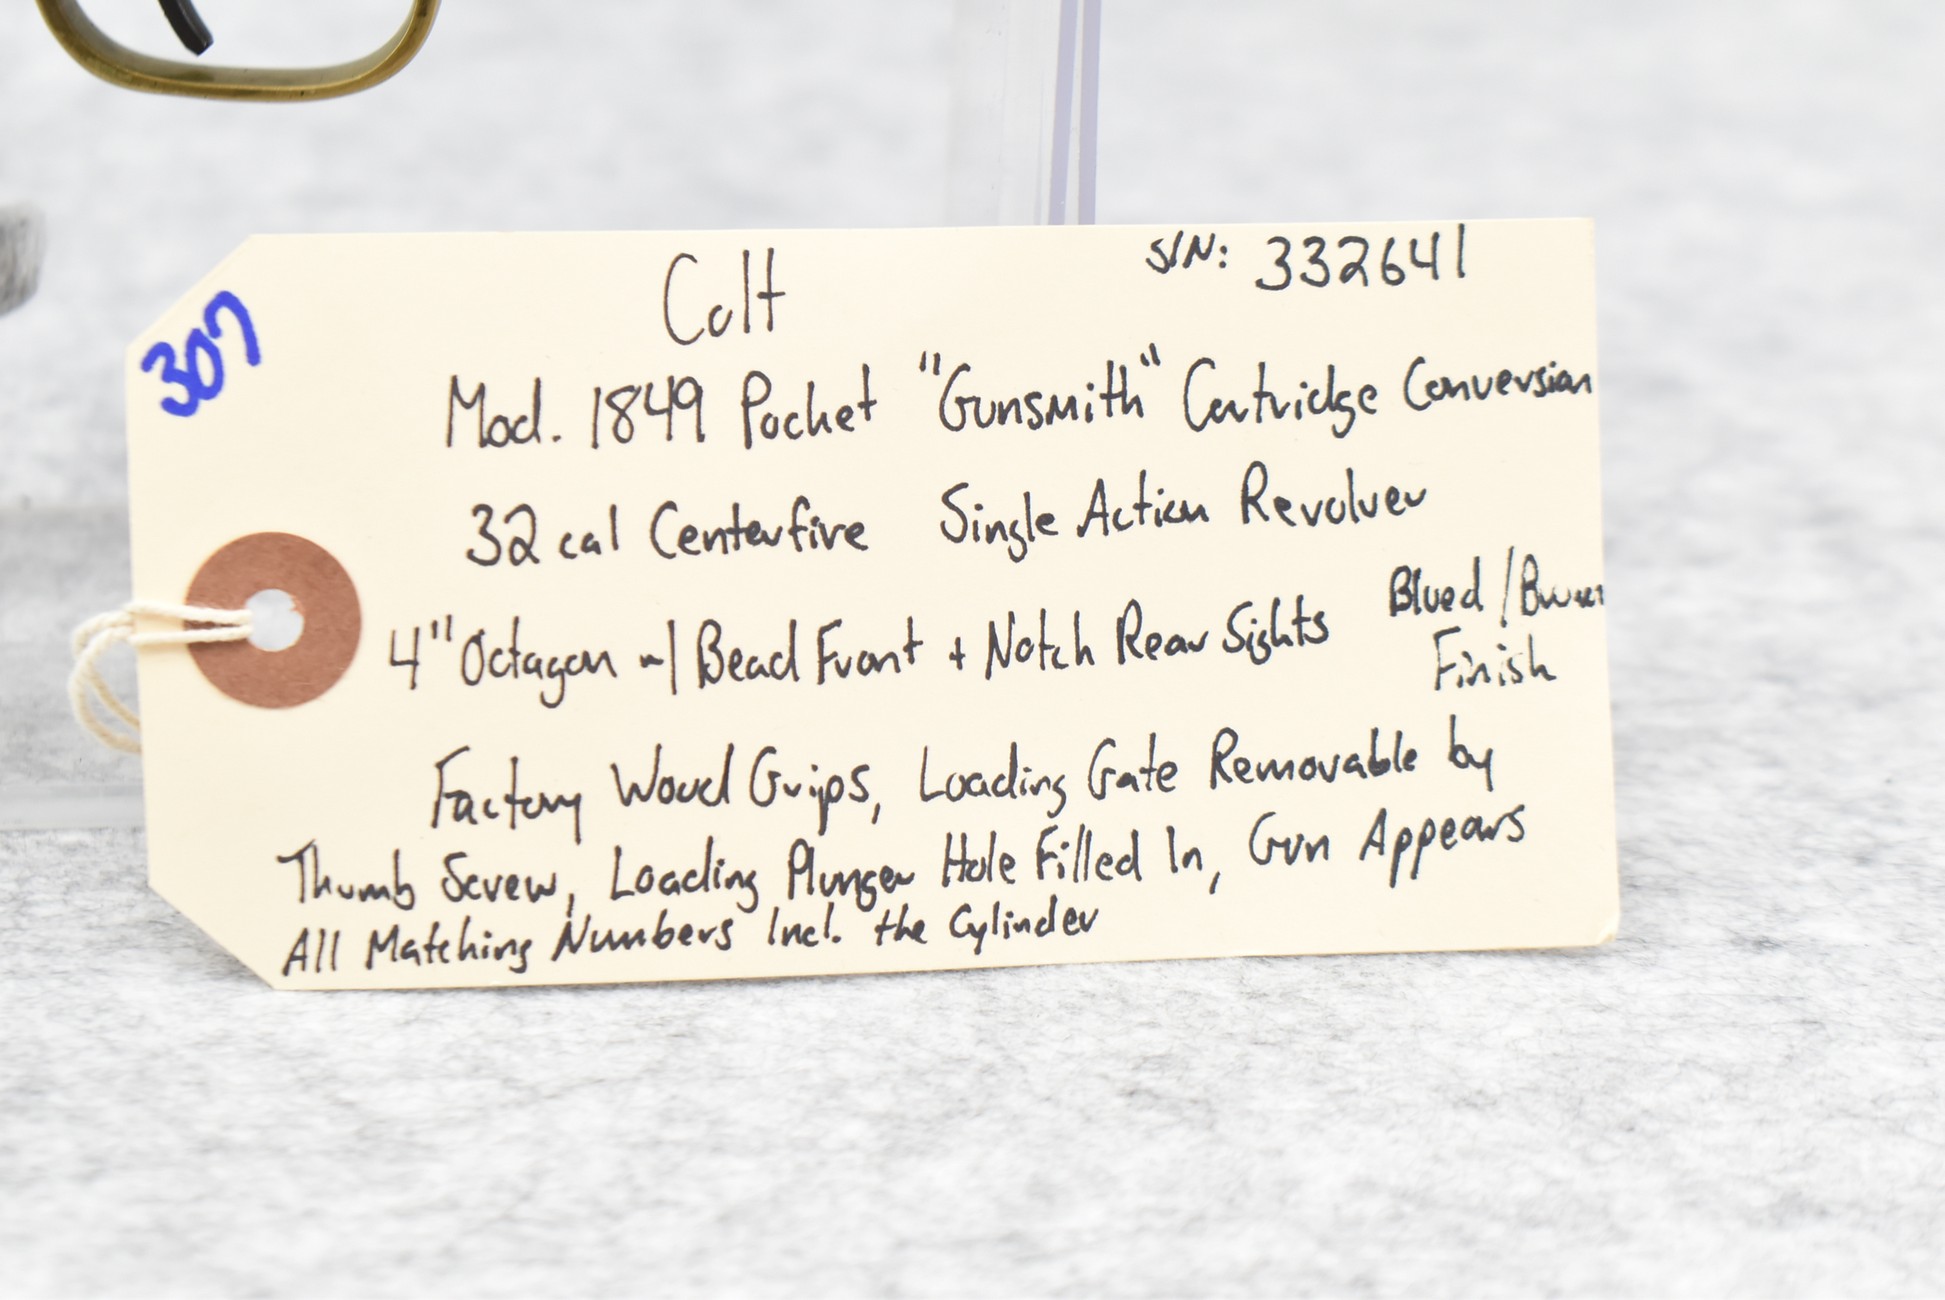 307
Colt
S/N: 332641
Mod. 1849 Pocket "Gunsmith" Cartridge Conversion
32 cal Centerfire Single Action Revolver
4" Octagon w/ Bead Front + Notch Rear Sights
Blued / Brown
Finish
Factory Wood Grips, Loading Gate Removable by
Thumb Screw, Loading Plunger Hole Filled In, Gun Appears
All Matching Numbers Incl. the Cylinder